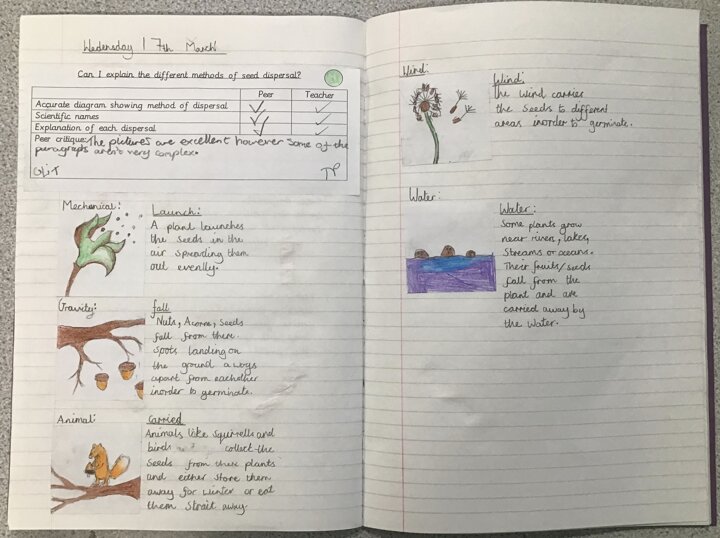 Wedensday 17th March
Can I explain the different methods of seed dispersal?
Peer Teacher
Accurate diagram showing method of dispersal
Scientific names
Explanation of each dispersal
Peer critique: The pictures are excellent however some of the
paragraphs aren't very complex.
Mechanical:
Launch:
A plant launches
the seeds in the
air spreading them
out evenlly.
Gravity:
fall
Nuts, Acorns, Seeds
fall from there
spots landing on
the ground
apart from eachother
inorder to germinate.
Animal:
carried
Animals like squirrells and
birds collect the
seeds from these plants
and either store them
away for winter or eat
them strait away
Wind:
Wind:
the wind carries
the seeds to different
areas inorder to germinate.
Water:
Water:
Some plants grow
near rivers, lakes,
streams or oceans.
Their fruits/seeds
fall from the
plant and are
carried away by
the water.